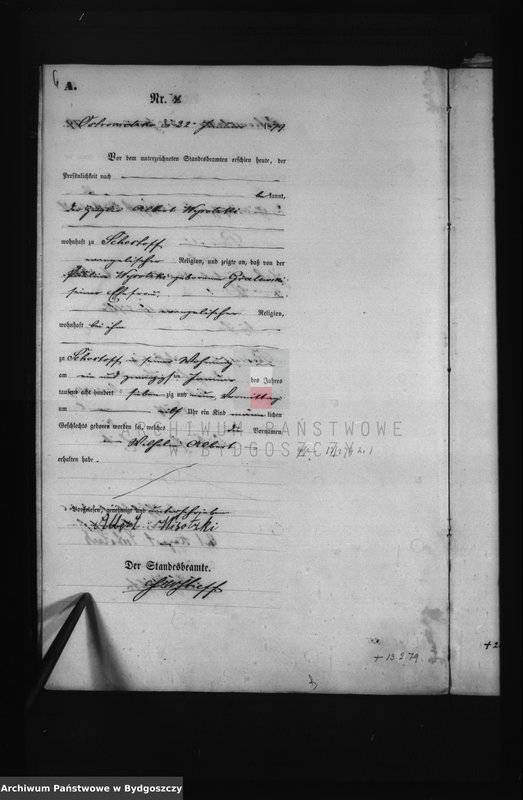 6
A.
Nr. 4
Ostrometzko, d. 22ⁿ Januar 1879
Vor dem unterzeichneten Standesbeamten erschien heute, der
Persönlichkeit nach
kannt,
Albert Wysotzki
wohnhaft zu Schostoff
evangelischer Religion, und zeigte an, daß von der
Wysotzki geborenen
seiner Ehefrau,
evangelischer Religion,
wohnhaft bei ihm
zu Schostoff in seiner Wohnung
am ein und zwanzigsten Januar des Jahres
tausend acht hundert siebenzig und neun, Vormittag
um elf Uhr ein Kind männlichen
Geschlechts geboren worden sei, welches die Vornamen
Wilhelm Albert
erhalten habe.
Vorgelesen, genehmigt und unterschrieben
Wisotzki
Der Standesbeamte.
+ 13.2.79
ARCHIWUM PAŃSTWOWE
W BYDGOSZCZY
Archiwum Państwowe w Bydgoszczy